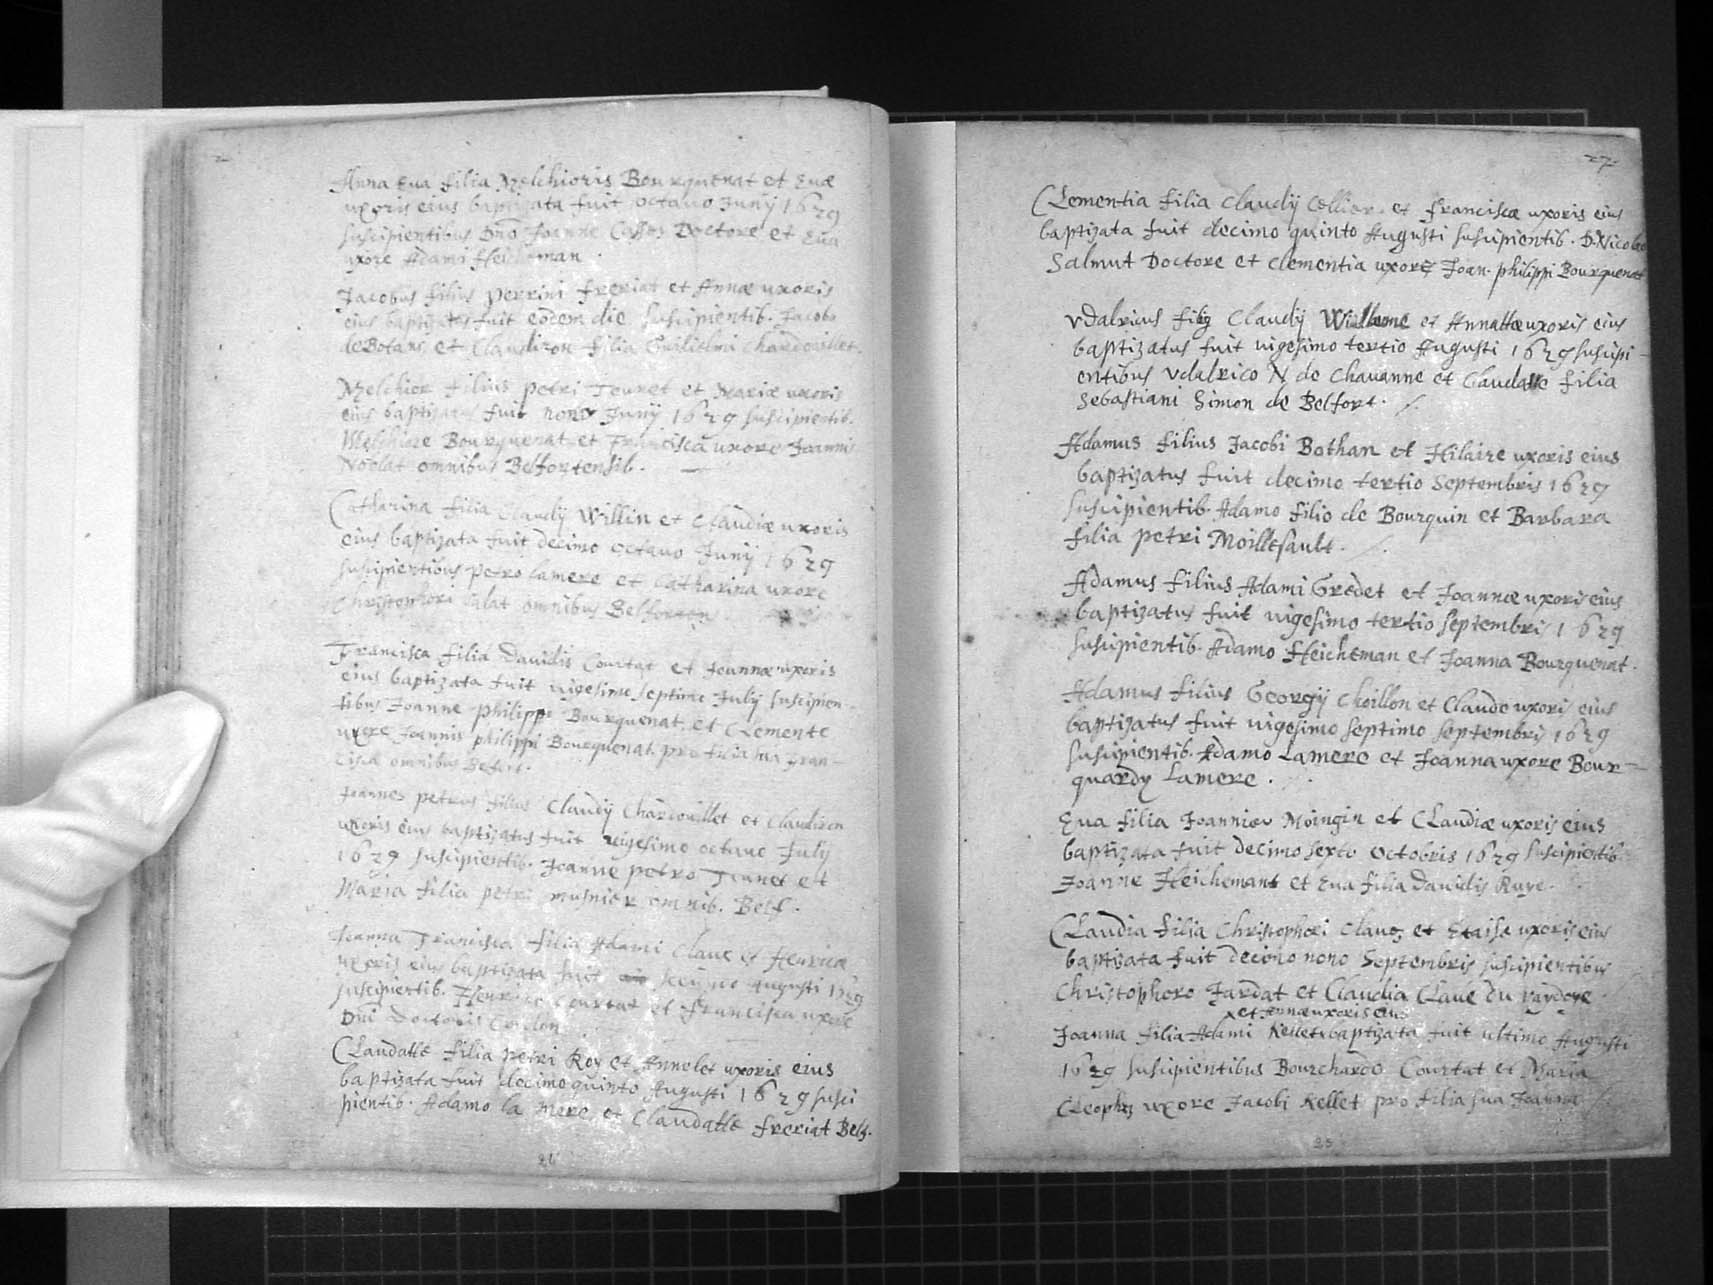 Anna Eua filia Melchioris Bourquenat et Euæ
uxoris eius baptizata fuit octauo Junÿ 1629
suscipientibus Dno Joanne Doctore et Eua
uxore Adami Heicheman.
Jacobus filius Perrini Freriat et Annæ uxoris
eius baptizatus fuit eodem die suscipientib. Jacobo
de Botans et Claudizon filia Guilielmi Chardouillet.
Melchior filius Petri Teuret et Mariæ uxoris
eius baptizatus fuit nono Junÿ 1629 suscipientib.
Melchiore Bourquenat et Francisca uxore Joannis
Noelat omnibus Belfortensib.
Catharina filia Claudÿ Willin et Claudiæ uxoris
eius baptizata fuit decimo octauo Junÿ 1629
suscipientibus Petro Lamere et Catharina uxore
Christophori Salat omnibus
Francisca filia Dauidis Courtat et Joannæ uxoris
eius baptizata fuit uigesimo septimo Julÿ suscipien-
tibus Joanne Philippo Bourquenat et Clemente
uxore Joannis Philippi Bourquenat pro filia sua Fran-
cisca omnibus Befort.
Joannes Petrus filius Claudÿ Chardouillet et Claudizon
uxoris eius baptizatus fuit uigesimo octauo Julÿ
1629 suscipientib. Joanne Petro et
Maria filia Petri Musnier omnib. Belf.
Joanna Francisca filia Adami Claue et Henricæ
uxoris eius baptizata fuit Augusti 1629
suscipientib. Henrico Courtat et Francisca uxore
Dni Doctoris
Claudatte filia Petri Roy et Annelet uxoris eius
baptizata fuit decimo quinto Augusti 1629 susci
pientib. Adamo la Mere et Claudatte Freriat Belf.
26
27.
Clementia filia Claudÿ Cellier et Franciscæ uxoris eius
baptizata fuit decimo quinto Augusti suscipientib. D. Nicolao
Salmut Doctore et Clementia uxore Joan. Philippi Bourquenat
Vdalricus Claudÿ et uxoris eius
baptizatus fuit uigesimo tertio Augusti 1629 suscipi-
entibus Vdalrico N de Chauanne et Claudatte filia
Sebastiani Simon de Belfort.
Adamus filius Jacobi Bothan et Hilaire uxoris eius
baptizatus fuit decimo tertio Septembris 1629
suscipientib. Adamo filio de Bourquin et Barbara
filia Petri Moillesault.
Adamus filius Adami Gredet et Joannæ uxoris eius
baptizatus fuit uigesimo tertio Septembris 1629
suscipientib. Adamo Heicheman et Joanna Bourquenat.
Adamus filius Georgÿ Choillon et Claude uxoris eius
baptizatus fuit uigesimo septimo Septembris 1629
suscipientib. Adamo Lamere et Joanna uxore Bour-
quardy Lamere.
Eua filia Joannis Moingin et Claudiæ uxoris eius
baptizata fuit decimo sexto Octobris 1629 suscipientib.
Joanne Heichemant et Eua filia Dauidis Ruye.
Claudia filia Christophori Clauez et uxoris eius
baptizata fuit decimo nono Septembris suscipientibus
Christophoro Jardat et Claudia Claue du Vardoye
et Annæ uxoris eius
Joanna filia Adami Kellet baptizata fuit ultimo Augusti
1629 suscipientibus Bourchardo Courtat et Maria
uxore Jacobi Kellet pro filia sua Joanna